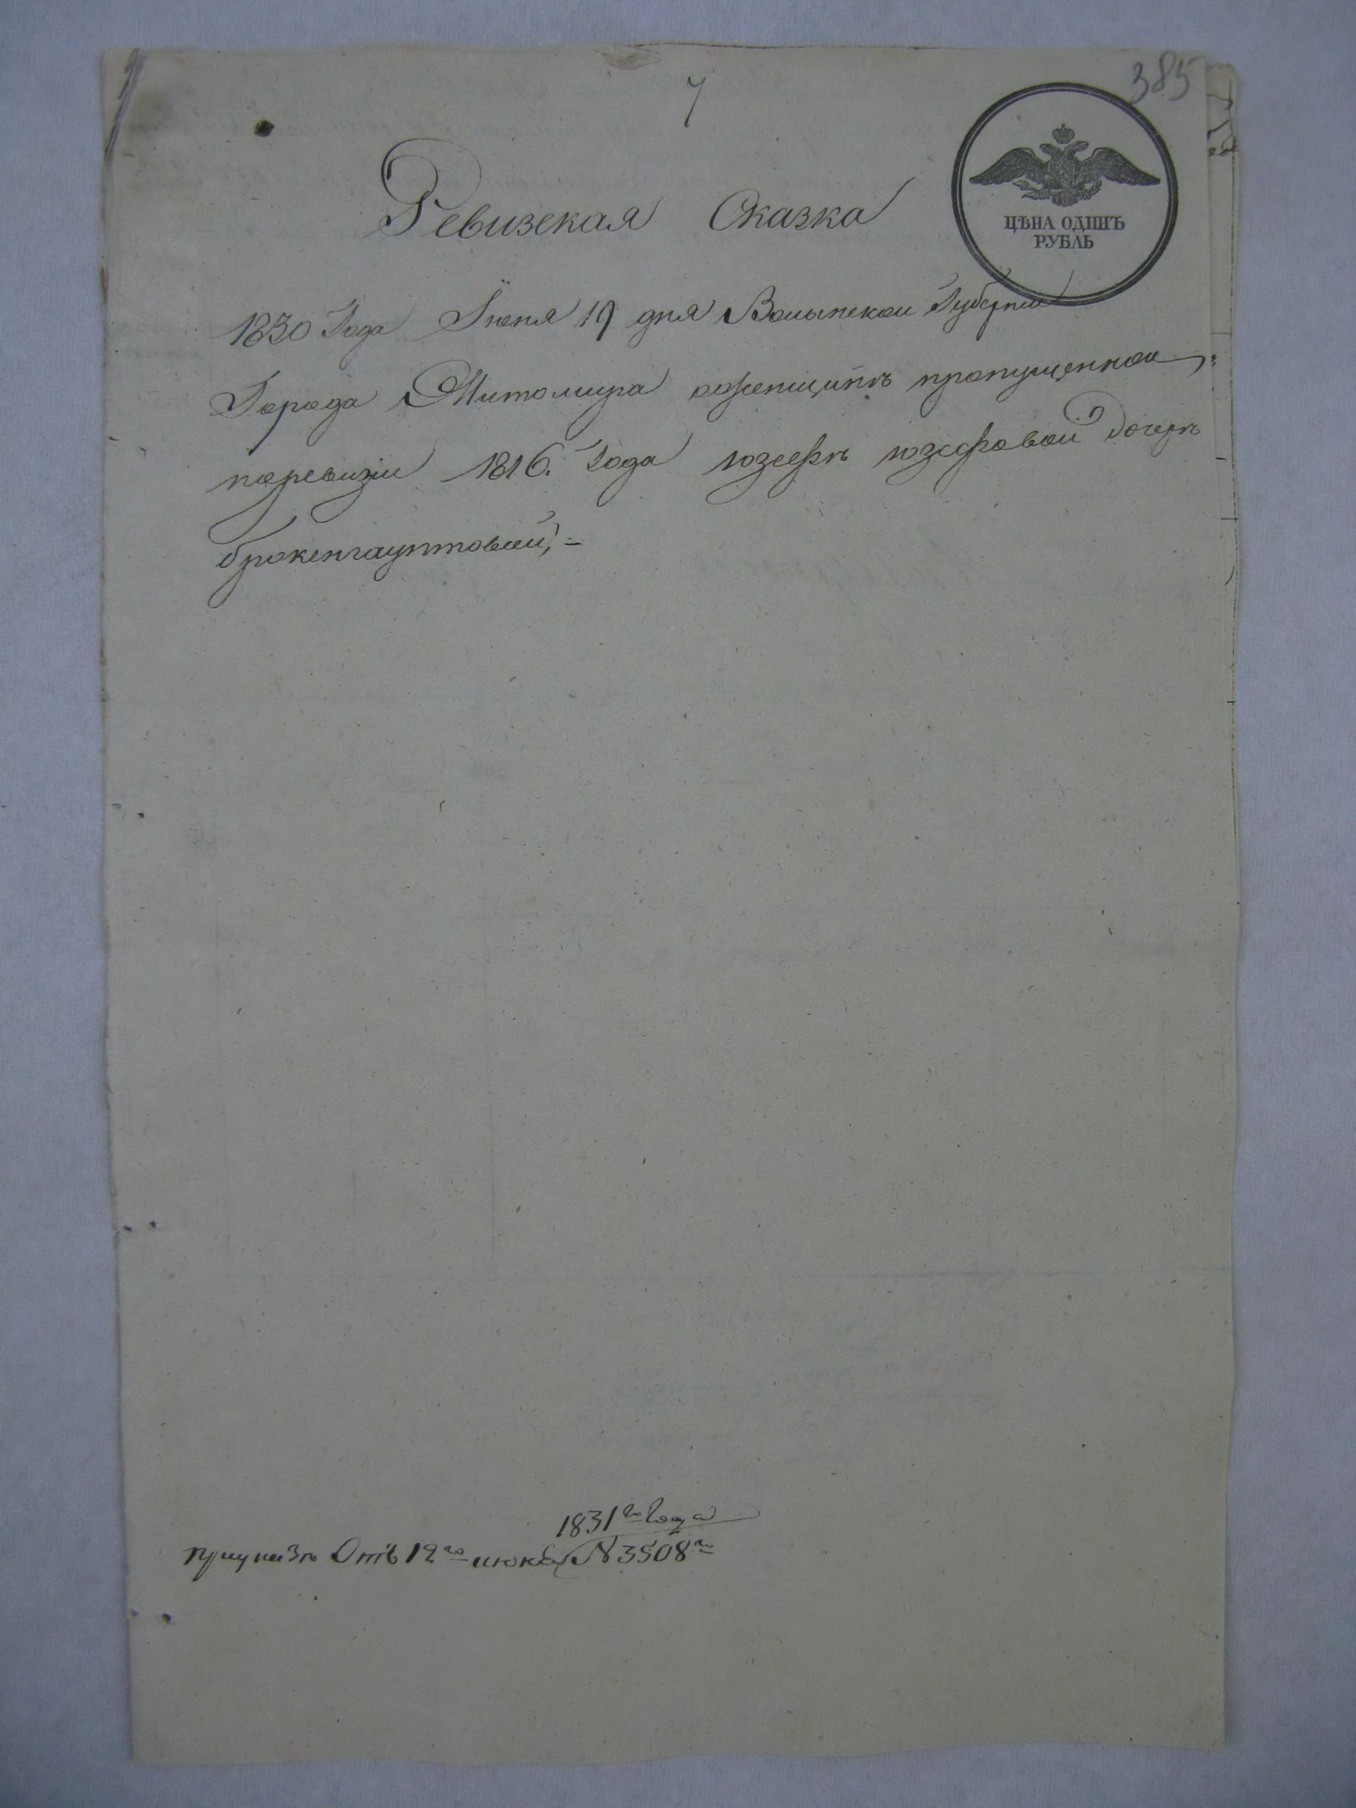 385
7
ЦѢНА ОДИНЪ
РУБЛЬ
Ревизская Сказка
1830 Года Июня 19 дня Волынской Губернии
Города Житомира о женщинѣ пропущенной
поревизіи 1816. Года юзефѣ юзефовой дочерѣ
брокенгауптовой,
1831го Года
При указѣ Отъ 12го июня N 3508го